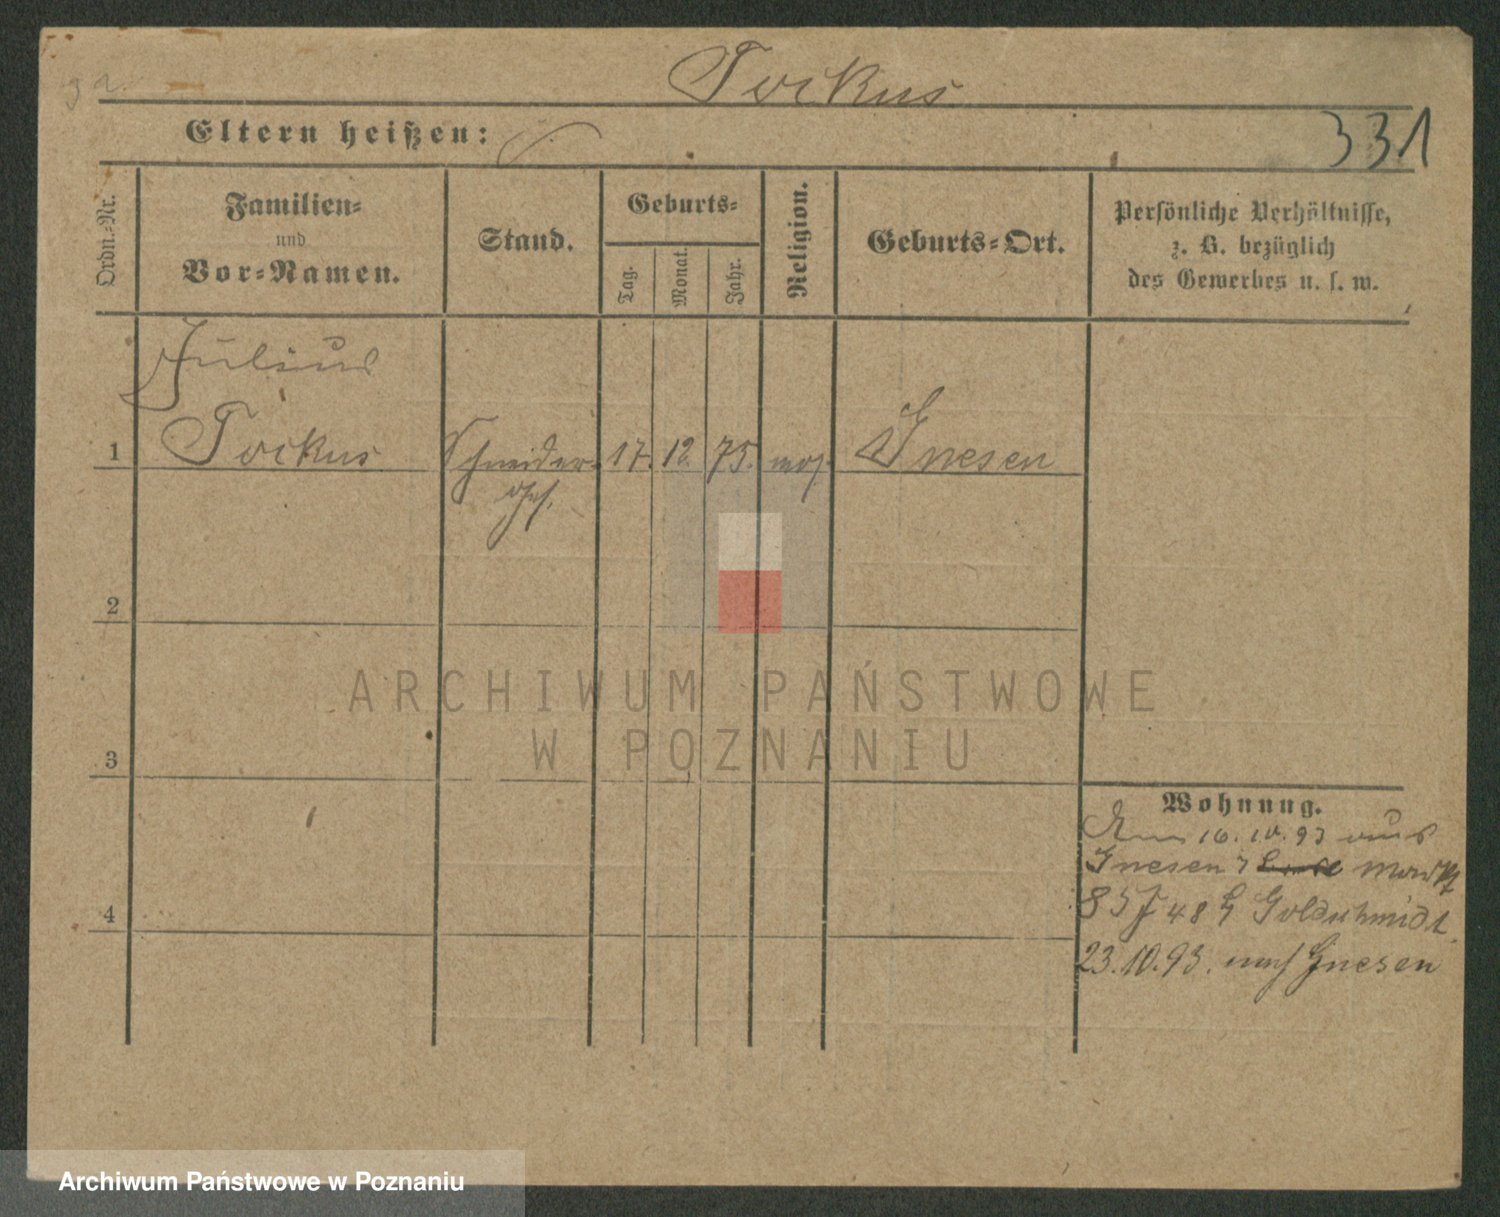 Tockus
Eltern heißen:
331
Ordn.-Nr.
Familien-
und
Vor-Namen.
Stand.
Geburts-
Tag.
Monat.
Jahr.
Religion.
Geburts-Ort.
Persönliche Verhältnisse,
z. B. bezüglich
des Gewerbes u. s. w.
Julius
1 Tockus Schneider- 17. 12. 75. mos. Gnesen
2
ARCHIWUM PAŃSTWOWE
W POZNANIU
3
Wohnung.
16. 10. 93 aus
Gnesen Markt
85 48 Goldschmidt.
4
23. 10. 93. nach Gnesen
Archiwum Państwowe w Poznaniu